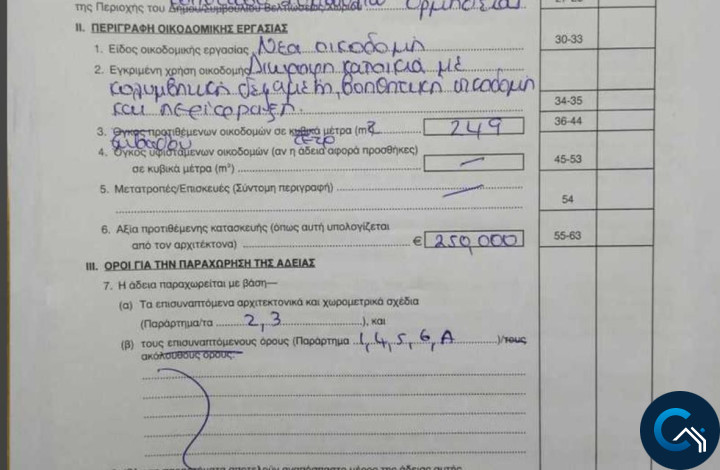 της Περιοχής του Δήμου/Συμβουλίου Βελτιώσεως/Χωριού
II. ΠΕΡΙΓΡΑΦΗ ΟΙΚΟΔΟΜΙΚΗΣ ΕΡΓΑΣΙΑΣ
1. Είδος οικοδομικής εργασίας Νέα οικοδομή 30-33
2. Εγκριμένη χρήση οικοδομής Διώροφη κατοικία με
κολυμβητική δεξαμενή, βοηθητική οικοδομή
και περίφραξη. 34-35
3. Όγκος προτιθέμενων οικοδομών σε κυβικά μέτρα (m 249 36-44
εμβαδού τετρ
4. Όγκος υφιστάμενων οικοδομών (αν η άδεια αφορά προσθήκες)
σε κυβικά μέτρα (m³) — 45-53
5. Μετατροπές/Επισκευές (Σύντομη περιγραφή) —
54
6. Αξία προτιθέμενης κατασκευής (όπως αυτή υπολογίζεται
από τον αρχιτέκτονα) € 250,000 55-63
III. ΟΡΟΙ ΓΙΑ ΤΗΝ ΠΑΡΑΧΩΡΗΣΗ ΤΗΣ ΑΔΕΙΑΣ
7. Η άδεια παραχωρείται με βάση—
(α) Τα επισυναπτόμενα αρχιτεκτονικά και χωρομετρικά σχέδια
(Παράρτημα/τα 2, 3), και
(β) τους επισυναπτόμενους όρους (Παράρτημα 1, 4, 5, 6, Α)/τους
ακόλουθους όρους: